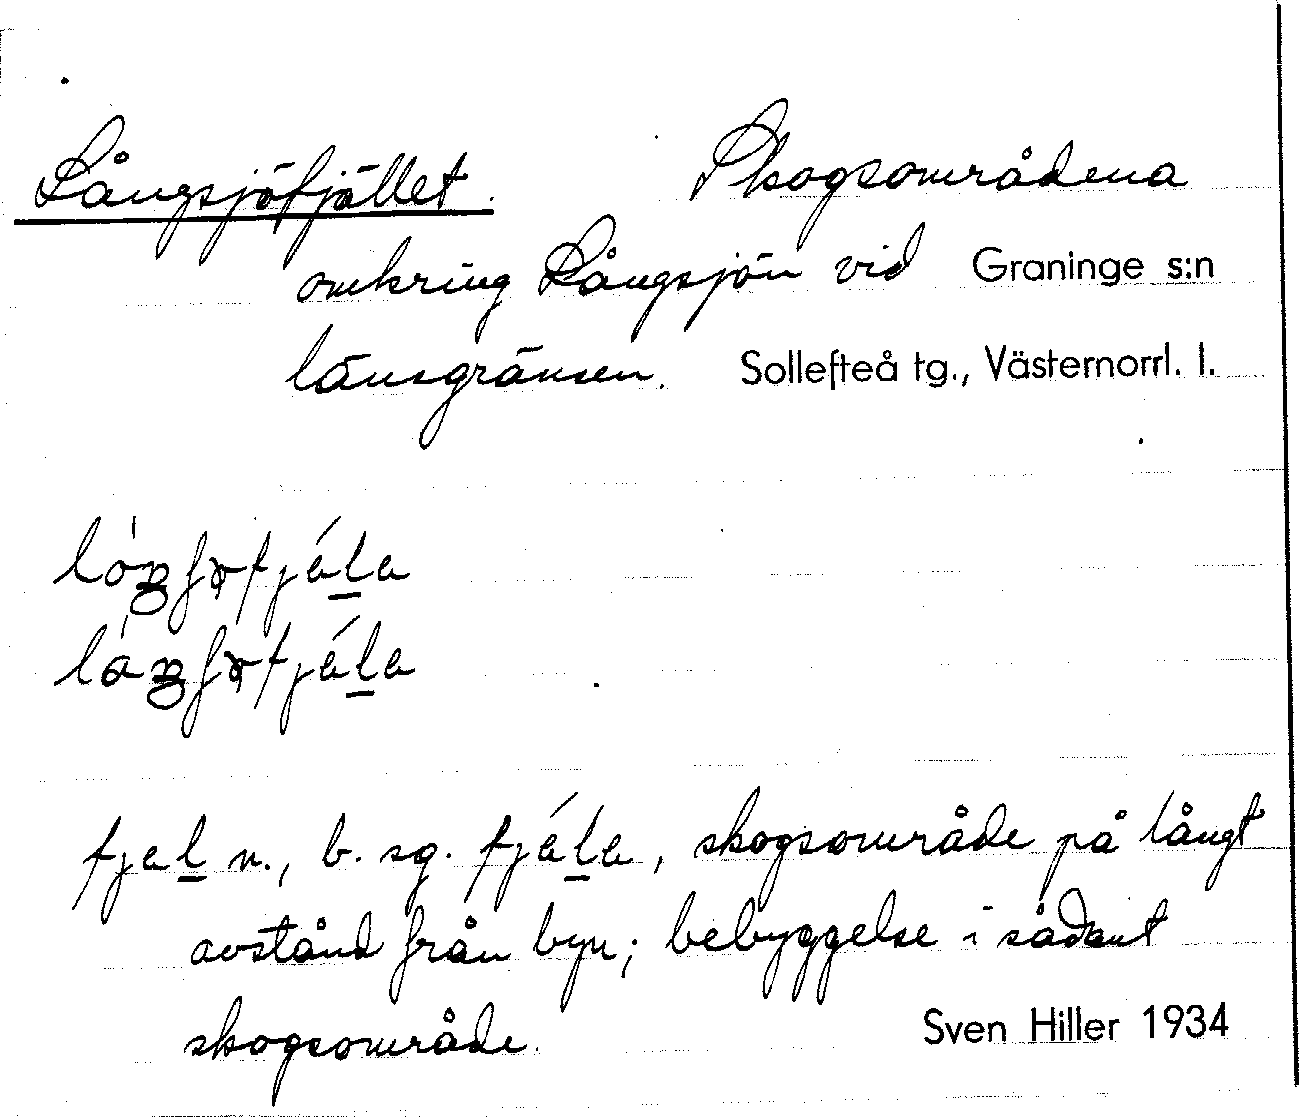 Långsjöfjället. Skogsområdena
omkring Långsjön vid Graninge s:n
länsgränsen. Sollefteå tg., Västernorrl. l.
fjal n., b. sg. fjála, skogsområde på långt
avstånd från byn; bebyggelse i sådant
skogsområde. Sven Hiller 1934